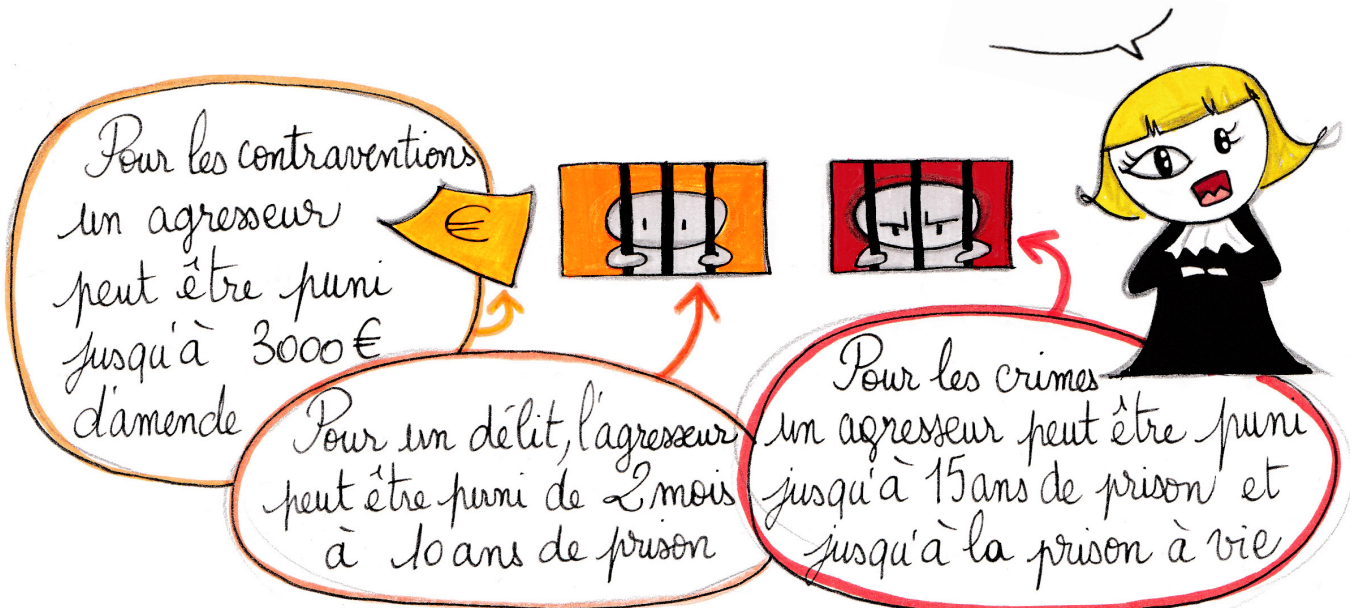 Pour les contraventions
un agresseur
peut être puni
jusqu'à 3000 €
d'amende
€
Pour un délit, l'agresseur
peut être puni de 2 mois
à 10 ans de prison
Pour les crimes
un agresseur peut être puni
jusqu'à 15 ans de prison et
jusqu'à la prison à vie